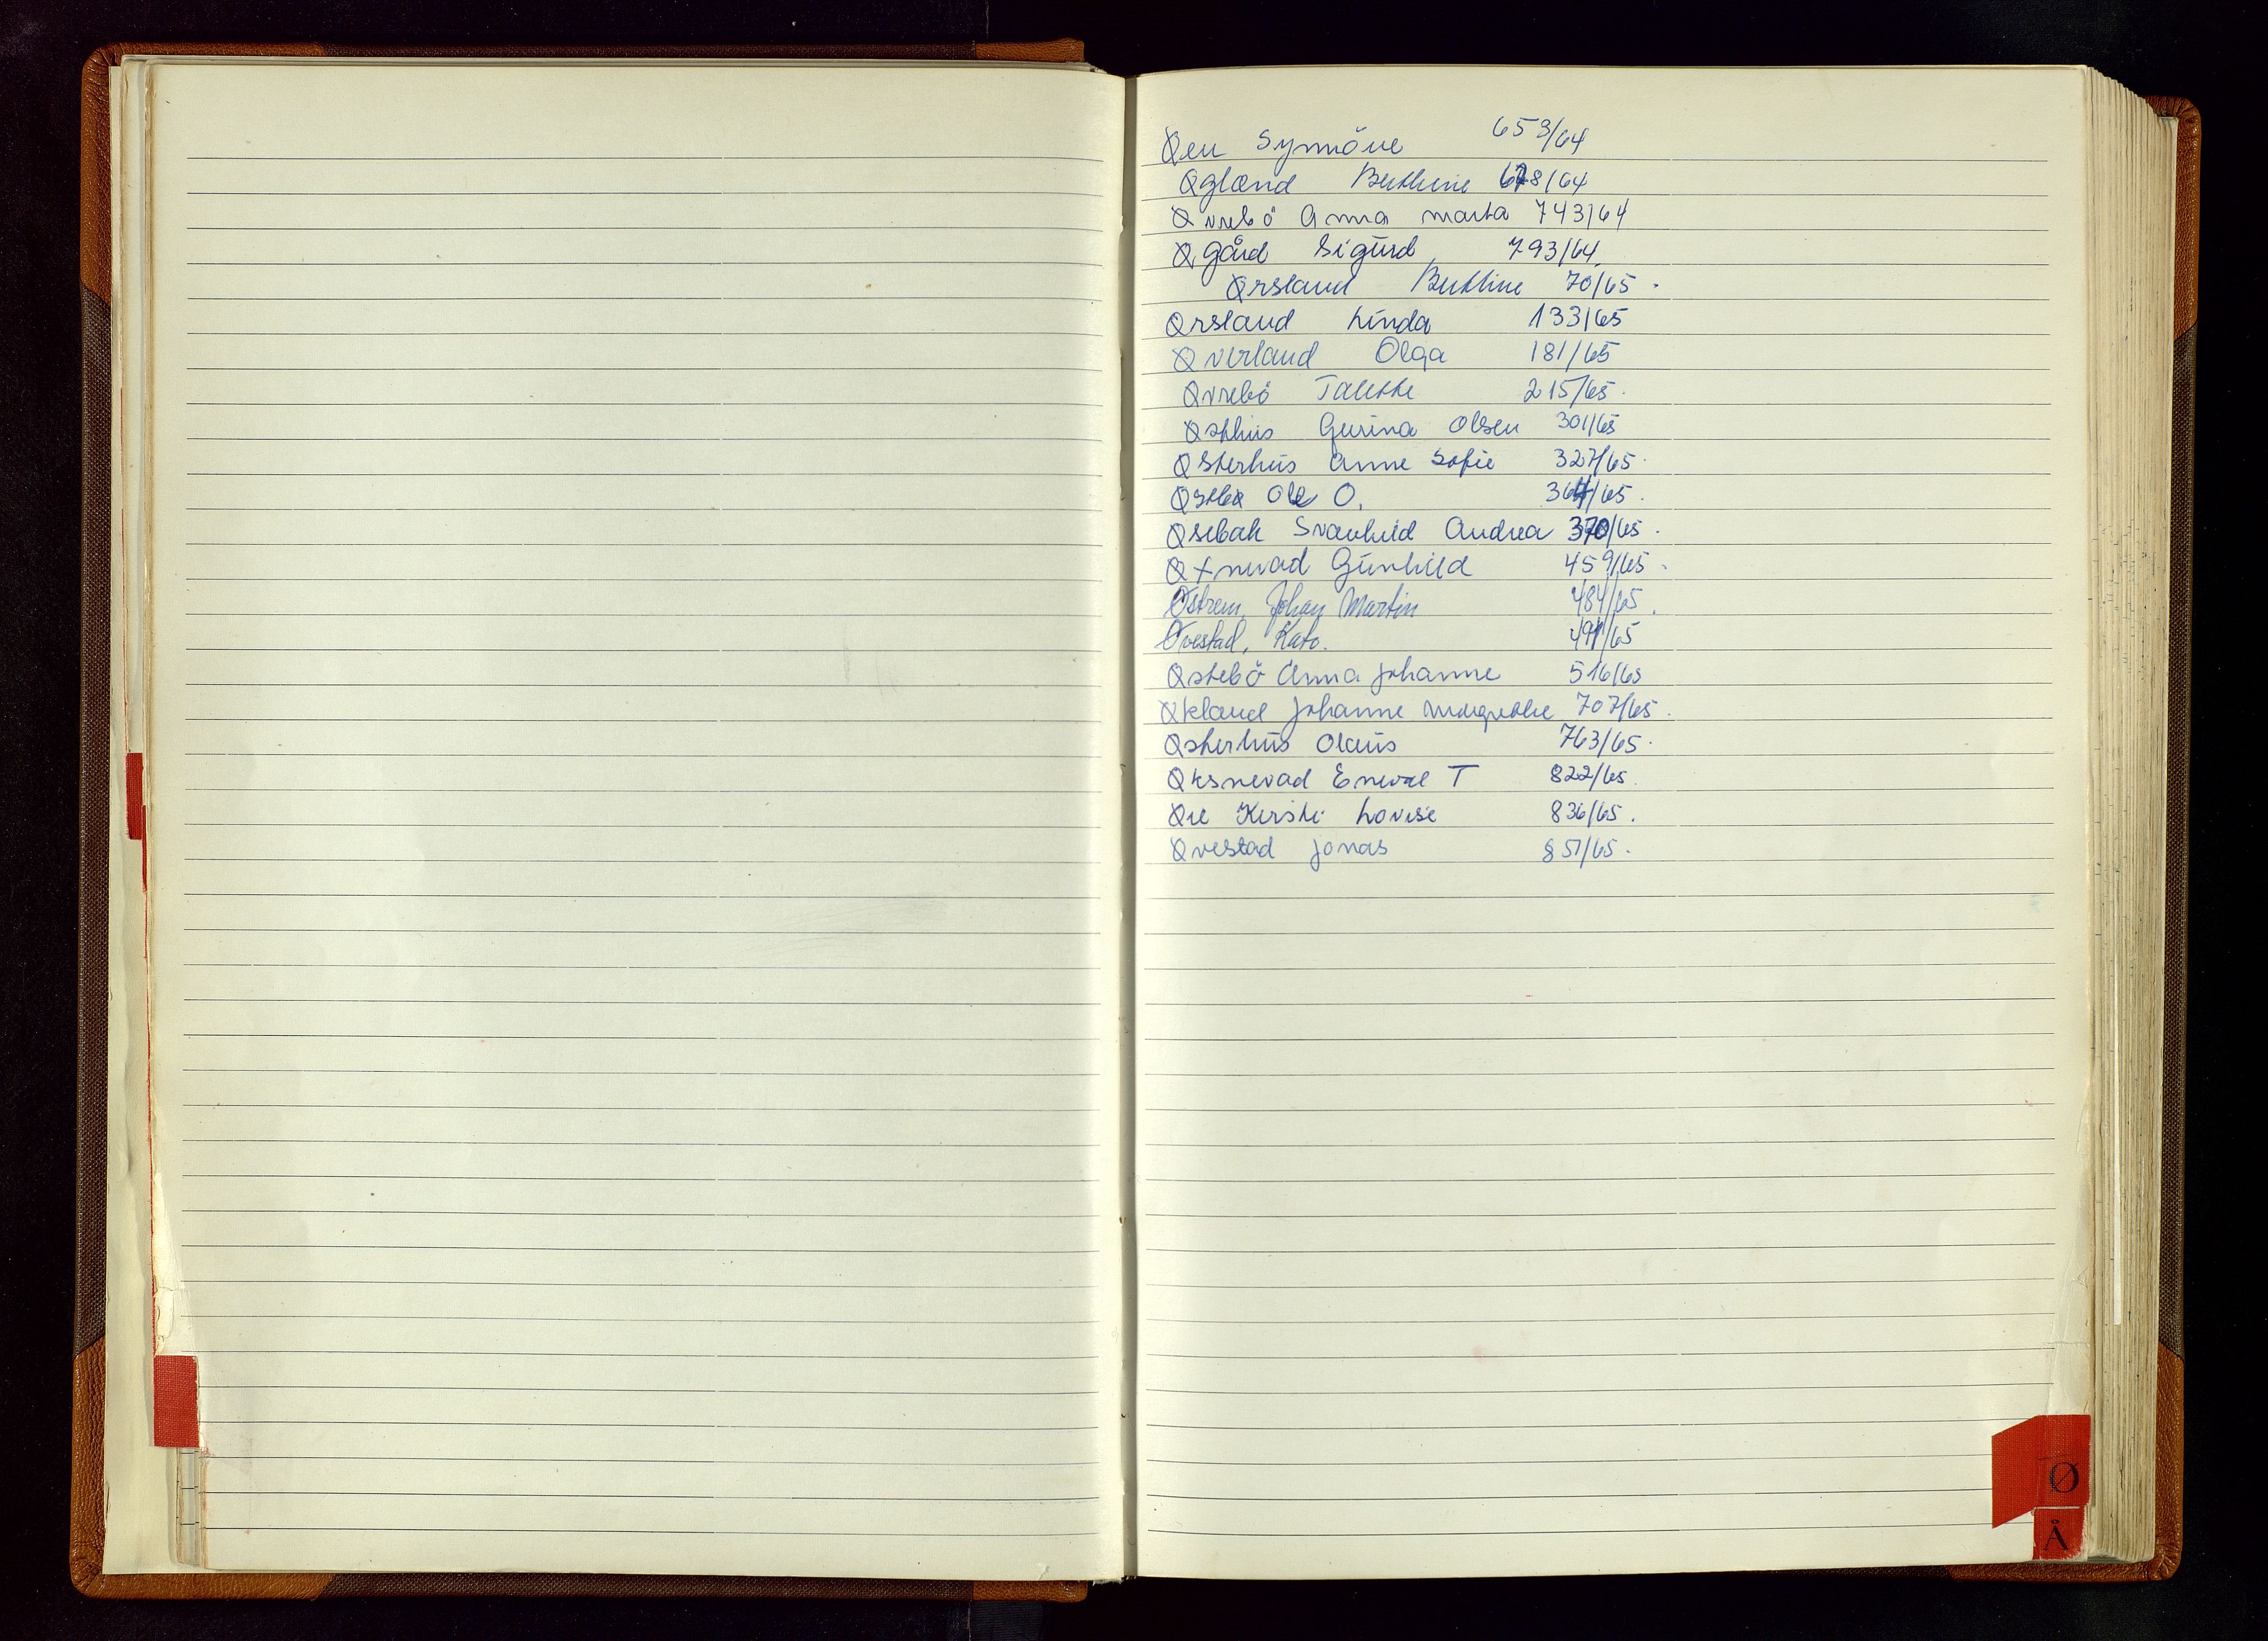 Øen Synnöve 653/64
Øgland Berthine 678/64
Øvrebö Anna Marta 743/64
Øgård Sigurd 793/64
Ørsland Berthine 70/65.
Ørsland Linda 133/65
Øverland Olga 181/65
Øvrebö Talette 215/65.
Østhus Gurina Olsen 301/65
Østerhus Anne Sofie 327/65.
Ole O. 364/65.
Øsebak Svanhild Andrea 370/65.
Øxnevad Gunhild 459/65.
Østrem, Johan Martin 484/65.
Øvestad, Kato. 491/65
Østebö Anna Johanne 516/65
Økland Johanne Margrethe 707/65.
Østerhus Olaus 763/65.
Øksnevad Eneval T 822/65.
Øie Kirsti Lovise 836/65.
Øvestad Jonas 851/65.
Ø
Å